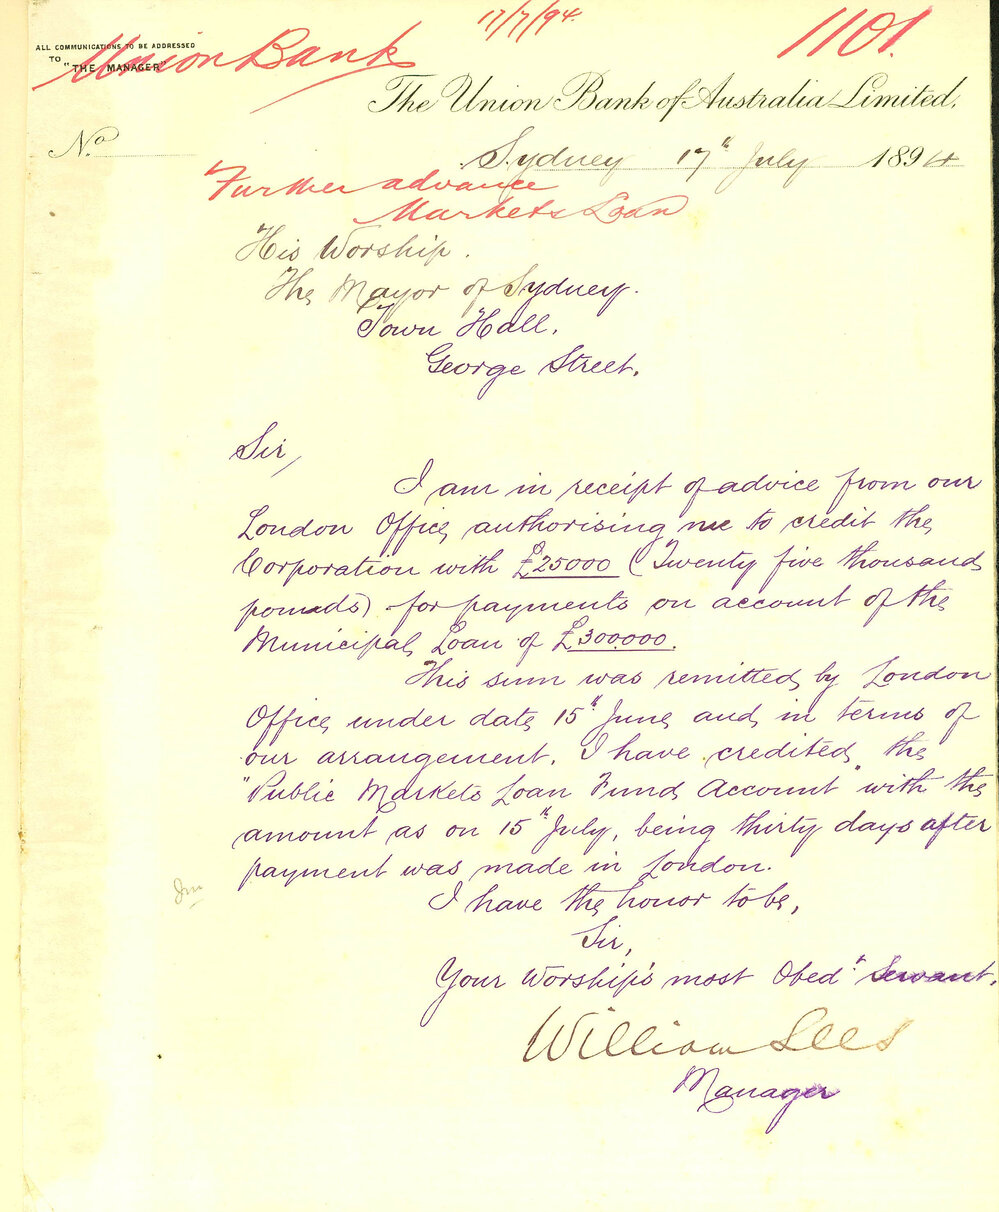 17/7/94.
1101.
ALL COMMUNICATIONS TO BE ADDRESSED
TO "THE MANAGER"
Union Bank
The Union Bank of Australia Limited.
No
Sydney 17th July 1894
Further advance
Markets Loan
His Worship.
The Mayor of Sydney.
Town Hall.
George Street.
Sir,
I am in receipt of advice from our
London Office authorising me to credit the
Corporation with £25000 (Twenty five thousand
pounds) for payments on account of the
Municipal Loan of £300.000.
This sum was remitted by London
Office under date 15th June and in terms of
our arrangement. I have credited the
"Public Markets Loan Fund Account" with the
amount as on 15th July, being thirty days after
payment was made in London.
I have the honor to be,
Sir,
Your Worship's most Obedt Servant.
William Lees
Manager